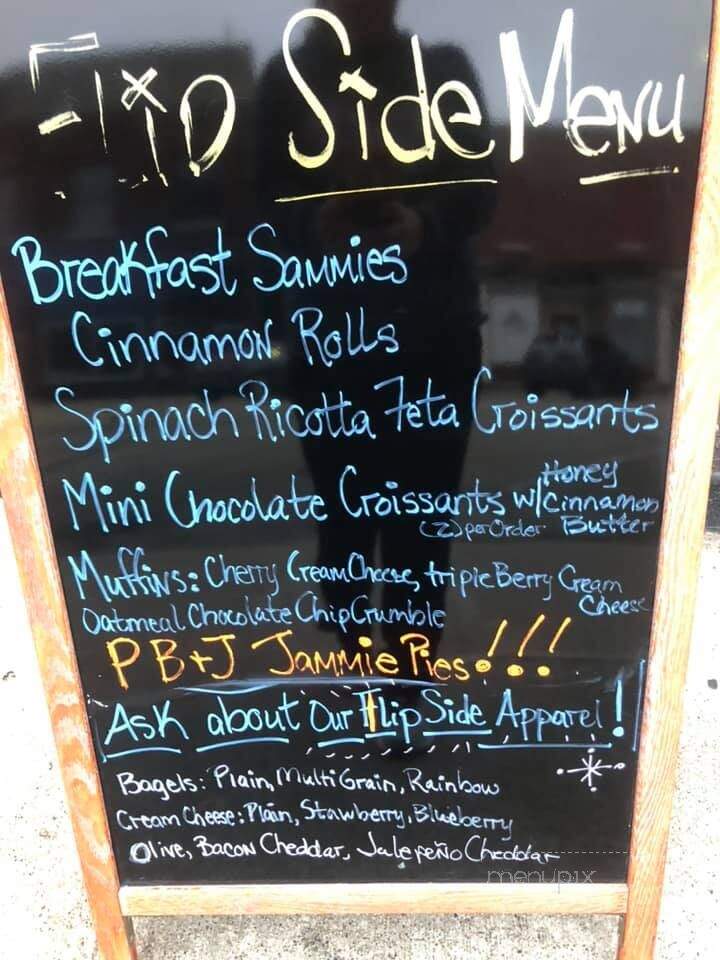 Flip Side Menu
Breakfast Sammies
Cinnamon Rolls
Spinach Ricotta Feta Croissants
Mini Chocolate Croissants w/ Honey Cinnamon Butter
(2) per Order
Muffins: Cherry Cream Cheese, triple Berry Cream Cheese
Oatmeal Chocolate Chip Crumble
PB+J Jammie Pies!!!
Ask about Our Flip Side Apparel!
Bagels: Plain, Multi Grain, Rainbow
Cream Cheese: Plain, Stawberry, Blueberry
Olive, Bacon Cheddar, Jalepeño Cheddar
menupix